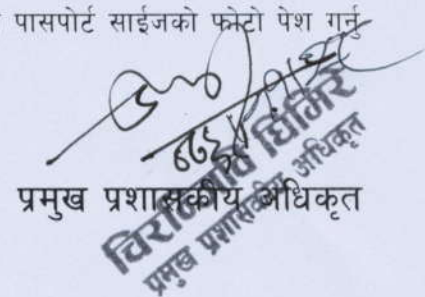 पासपोर्ट साईजको फोटो पेश गर्नु
प्रमुख प्रशासकीय अधिकृत
चिरञ्जीवि घिमिरे
प्रमुख प्रशासकीय अधिकृत